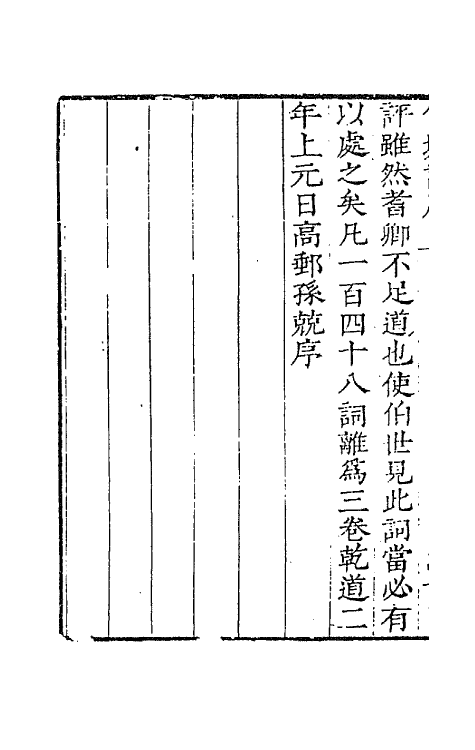 評雖然耆卿不足道也使伯世見此詞當必有
以處之矣凡一百四十八詞離爲三卷乾道二
年上元日高郵孫兢序